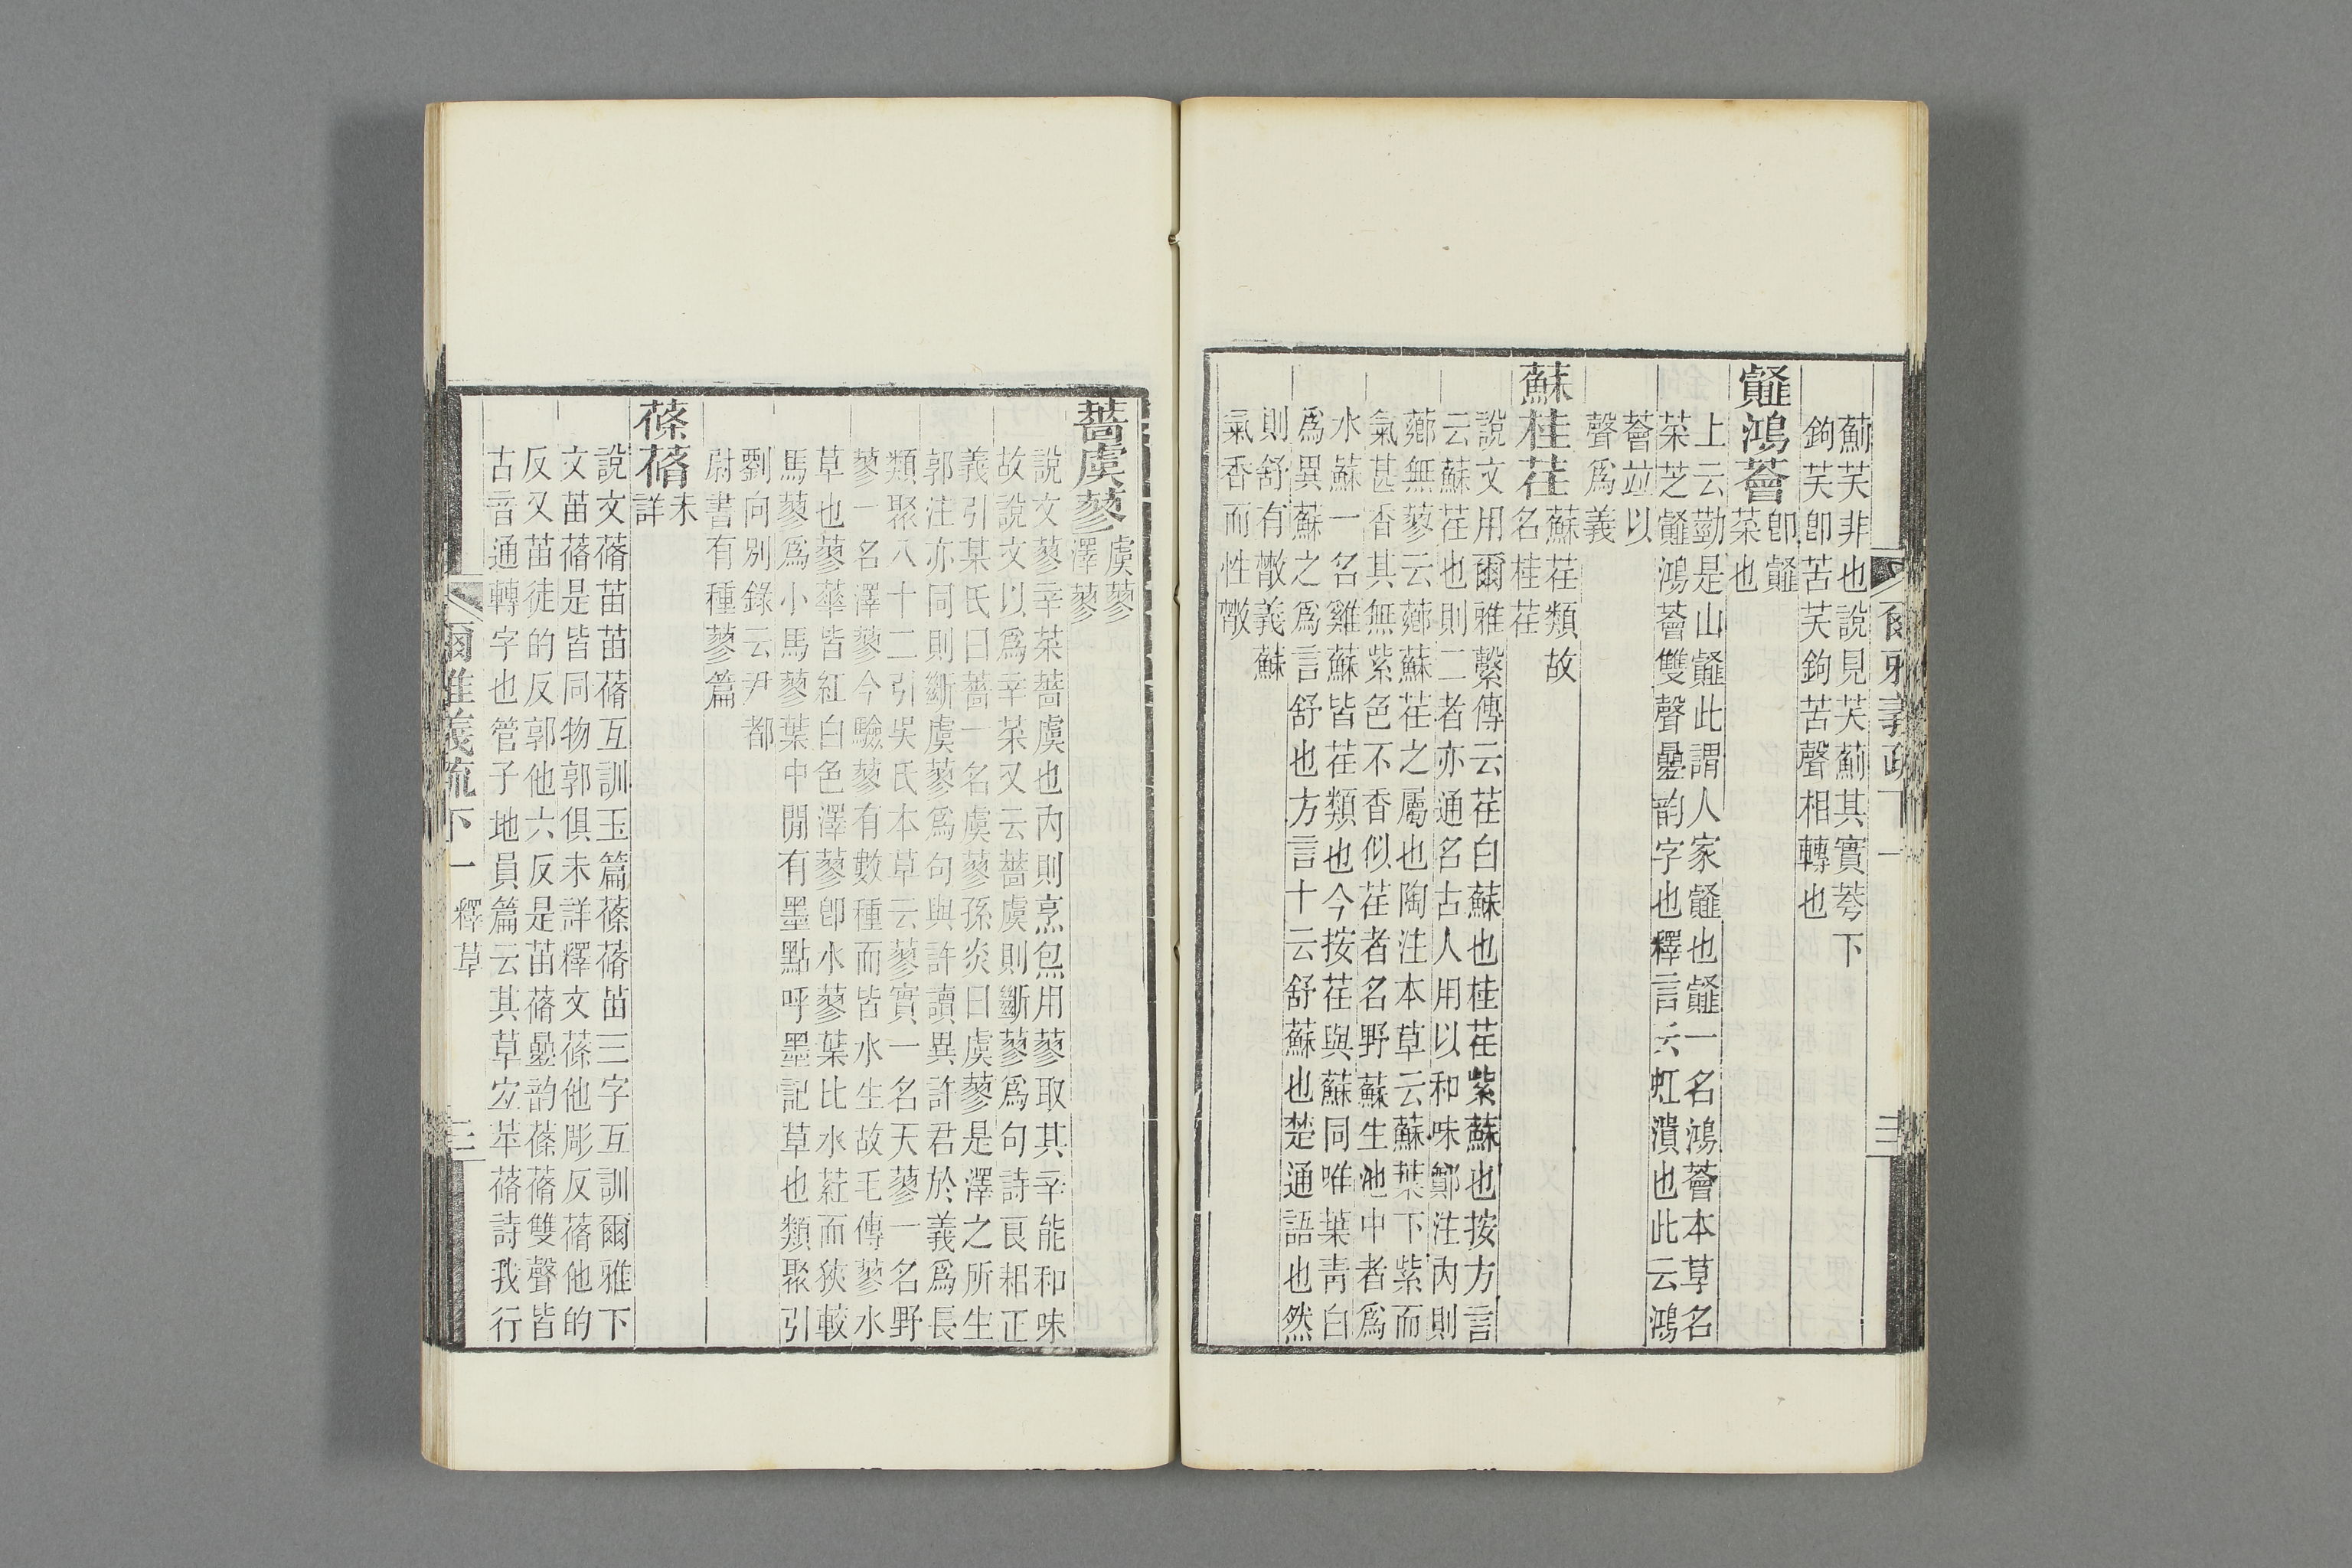 薊芺非也說見芺薊其實荂下
鉤芺卽苦芺鉤苦聲相轉也
䪥鴻薈
卽䪥
菜也
上云勁是山䪥此謂人家䪥也䪥一名鴻薈本草名
菜芝䪥鴻薈雙聲疊韵字也釋言云虹潰也此云鴻
薈竝以
聲爲義
蘇桂荏
蘇荏類故
名桂荏
說文用爾雅繫傳云荏白蘇也桂荏紫蘇也按方言
云蘇荏也則二者亦通名古人用以和味鄭注內則
薌無蓼云薌蘇荏之屬也陶注本草云蘇葉下紫而
氣甚香其無紫色不香似荏者名野蘇生池中者爲
水蘇一名雞蘇皆荏類也今按荏與蘇同唯葉靑白
爲異蘇之爲言舒也方言十云舒蘇也楚通語也然
則舒有散義蘇
氣香而性散
爾雅義疏下一
三
薔虞蓼
虞蓼
澤蓼
說文蓼辛菜薔虞也內則烹包用蓼取其辛能和味
故說文以爲辛菜又云薔虞則斷蓼爲句詩良耜正
義引某氏曰薔一名虞蓼孫炎曰虞蓼是澤之所生
郭注亦同則斷虞蓼爲句與許讀異許君於義爲長
類聚八十二引吳氏本草云蓼實一名天蓼一名野
蓼一名澤蓼今驗蓼有數種而皆水生故毛傳蓼水
草也蓼華皆紅白色澤蓼卽水蓼葉比水葒而狹較
馬蓼爲小馬蓼葉中閒有墨點呼墨記草也類聚引
劉向別錄云尹都
尉書有種蓼篇
蓧蓨
未
詳
說文蓨苖苖蓨互訓玉篇蓧蓨苖三字互訓爾雅下
文苖蓨是皆同物郭俱未詳釋文蓧他彫反蓨他的
反又苖徒的反郭他六反是苖蓨疊韵蓧蓨雙聲皆
古音通轉字也管子地員篇云其草宜苹蓨詩我行
爾雅義疏下一
釋草
三